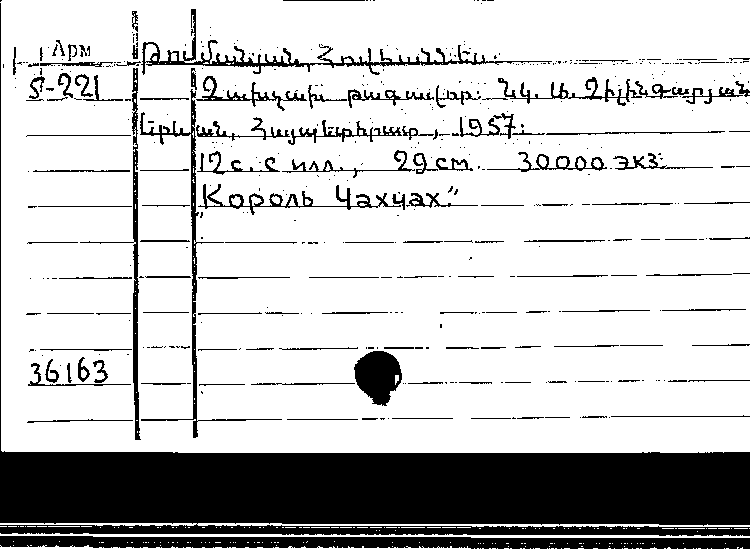 Арм
Թումանյան, Հովհաննես:
Տ-221
Չախչախ թագավոր: Նկ. Ա. Չիլինգարյան
Երևան, Հայպետհրատ, 1957:
12 с. с илл., 29 см. 30000 экз.
„Король Чахчах."
36163